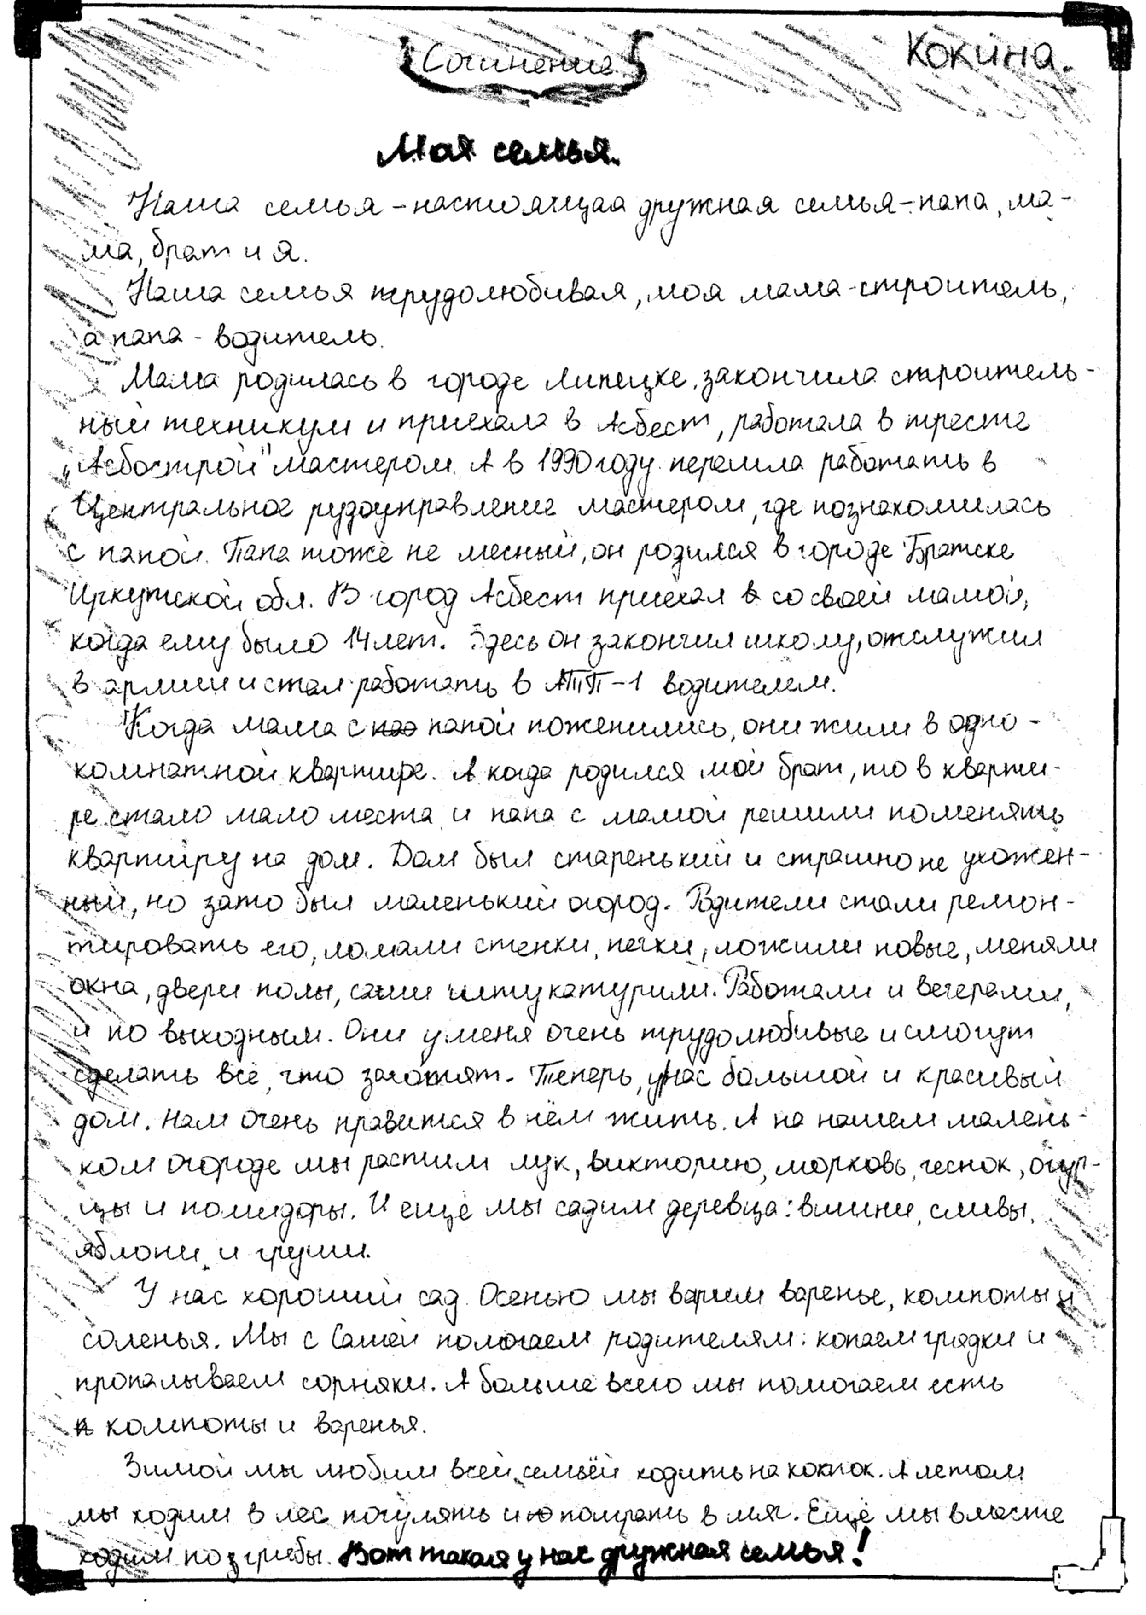 Сочинение
Кокина.
Моя семья.
Наша семья – настоящая дружная семья – папа, ма-
ма, брат и я.
Наша семья трудолюбивая, моя мама - строитель,
а папа - водитель.
Мама родилась в городе Липецке, закончила строитель-
ный техникум и приехала в Асбест, работала в тресте
„Асбострой" мастером. А в 1990 году перешла работать в
Центральное рудоуправление мастером, где познакомилась
с папой. Папа тоже не месный, он родился в городе Братске
Иркутской обл. В город Асбест приехал в со своей мамой,
когда ему было 14 лет. Здесь он закончил школу, отслужил
в армии и стал работать в АТП-1 водителем.
Когда мама с папой поженились, они жили в одно-
комнатной квартире. А когда родился мой брат, то в кварти-
ре стало мало места и папа с мамой решили поменять
квартиру на дом. Дом был старенький и страшно не ухожен-
ный, но зато был маленький огород. Родители стали ремон-
тировать его, ломали стенки, печки, ложили новые, меняли
окна, двери полы, сами штукатурили. Работали и вечерами,
и по выходным. Они у меня очень трудолюбивые и смогут
сделать всё, что захотят. Теперь, у нас большой и красивый
дом. Нам очень нравится в нём жить. А на нашем малень-
ком огороде мы растим лук, викторию, морковь, чеснок, огур-
цы и помидоры. И ещё мы садим деревца: вишни, сливы,
яблони и груши.
У нас хороший сад. Осенью мы варим варенье, компоты и
соленья. Мы с Сашей помогаем родителям: копаем грядки и
пропалываем сорняки. А больше всего мы помогаем есть
компоты и варенья.
Зимой мы любим всей семьёй ходить на каток. А летом
мы ходим в лес погулять и поиграть в мяч. Ещё мы вместе
ходим по грибы. Вот такая у нас дружная семья!